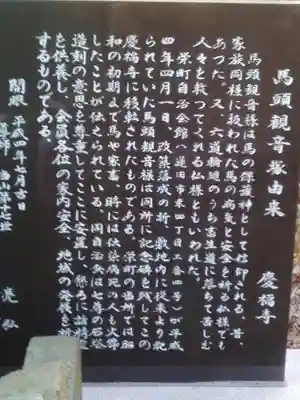 馬頭観音塚由来
慶福寺
馬頭観音様は馬の保護神として信仰される、昔、
家族同様に扱われた馬の病気と安全を祈る仏様でも
あった。又、六道輪廻のうち畜生道に落ちて苦しむ
人々を救つてくれる仏様ともいわれた。
栄町自治会館(蓮田市東四丁目二番四号)が平成
四年四月一日、改築落成の折、敷地内に従来より祀
られていた馬頭観音様は同所に記念碑を残してこの
慶福寺に移転されたものである。栄町の当所では昭
和の初期まで馬や家畜、時には伝染病死の人も火葬
したことが伝えられている。同自治会は七基の石塔
造刻の意思を尊重してここに安置し、
を供養し、会員各位の家内安全、地域の発展を祈
するものである。
開眼 平成四年七月